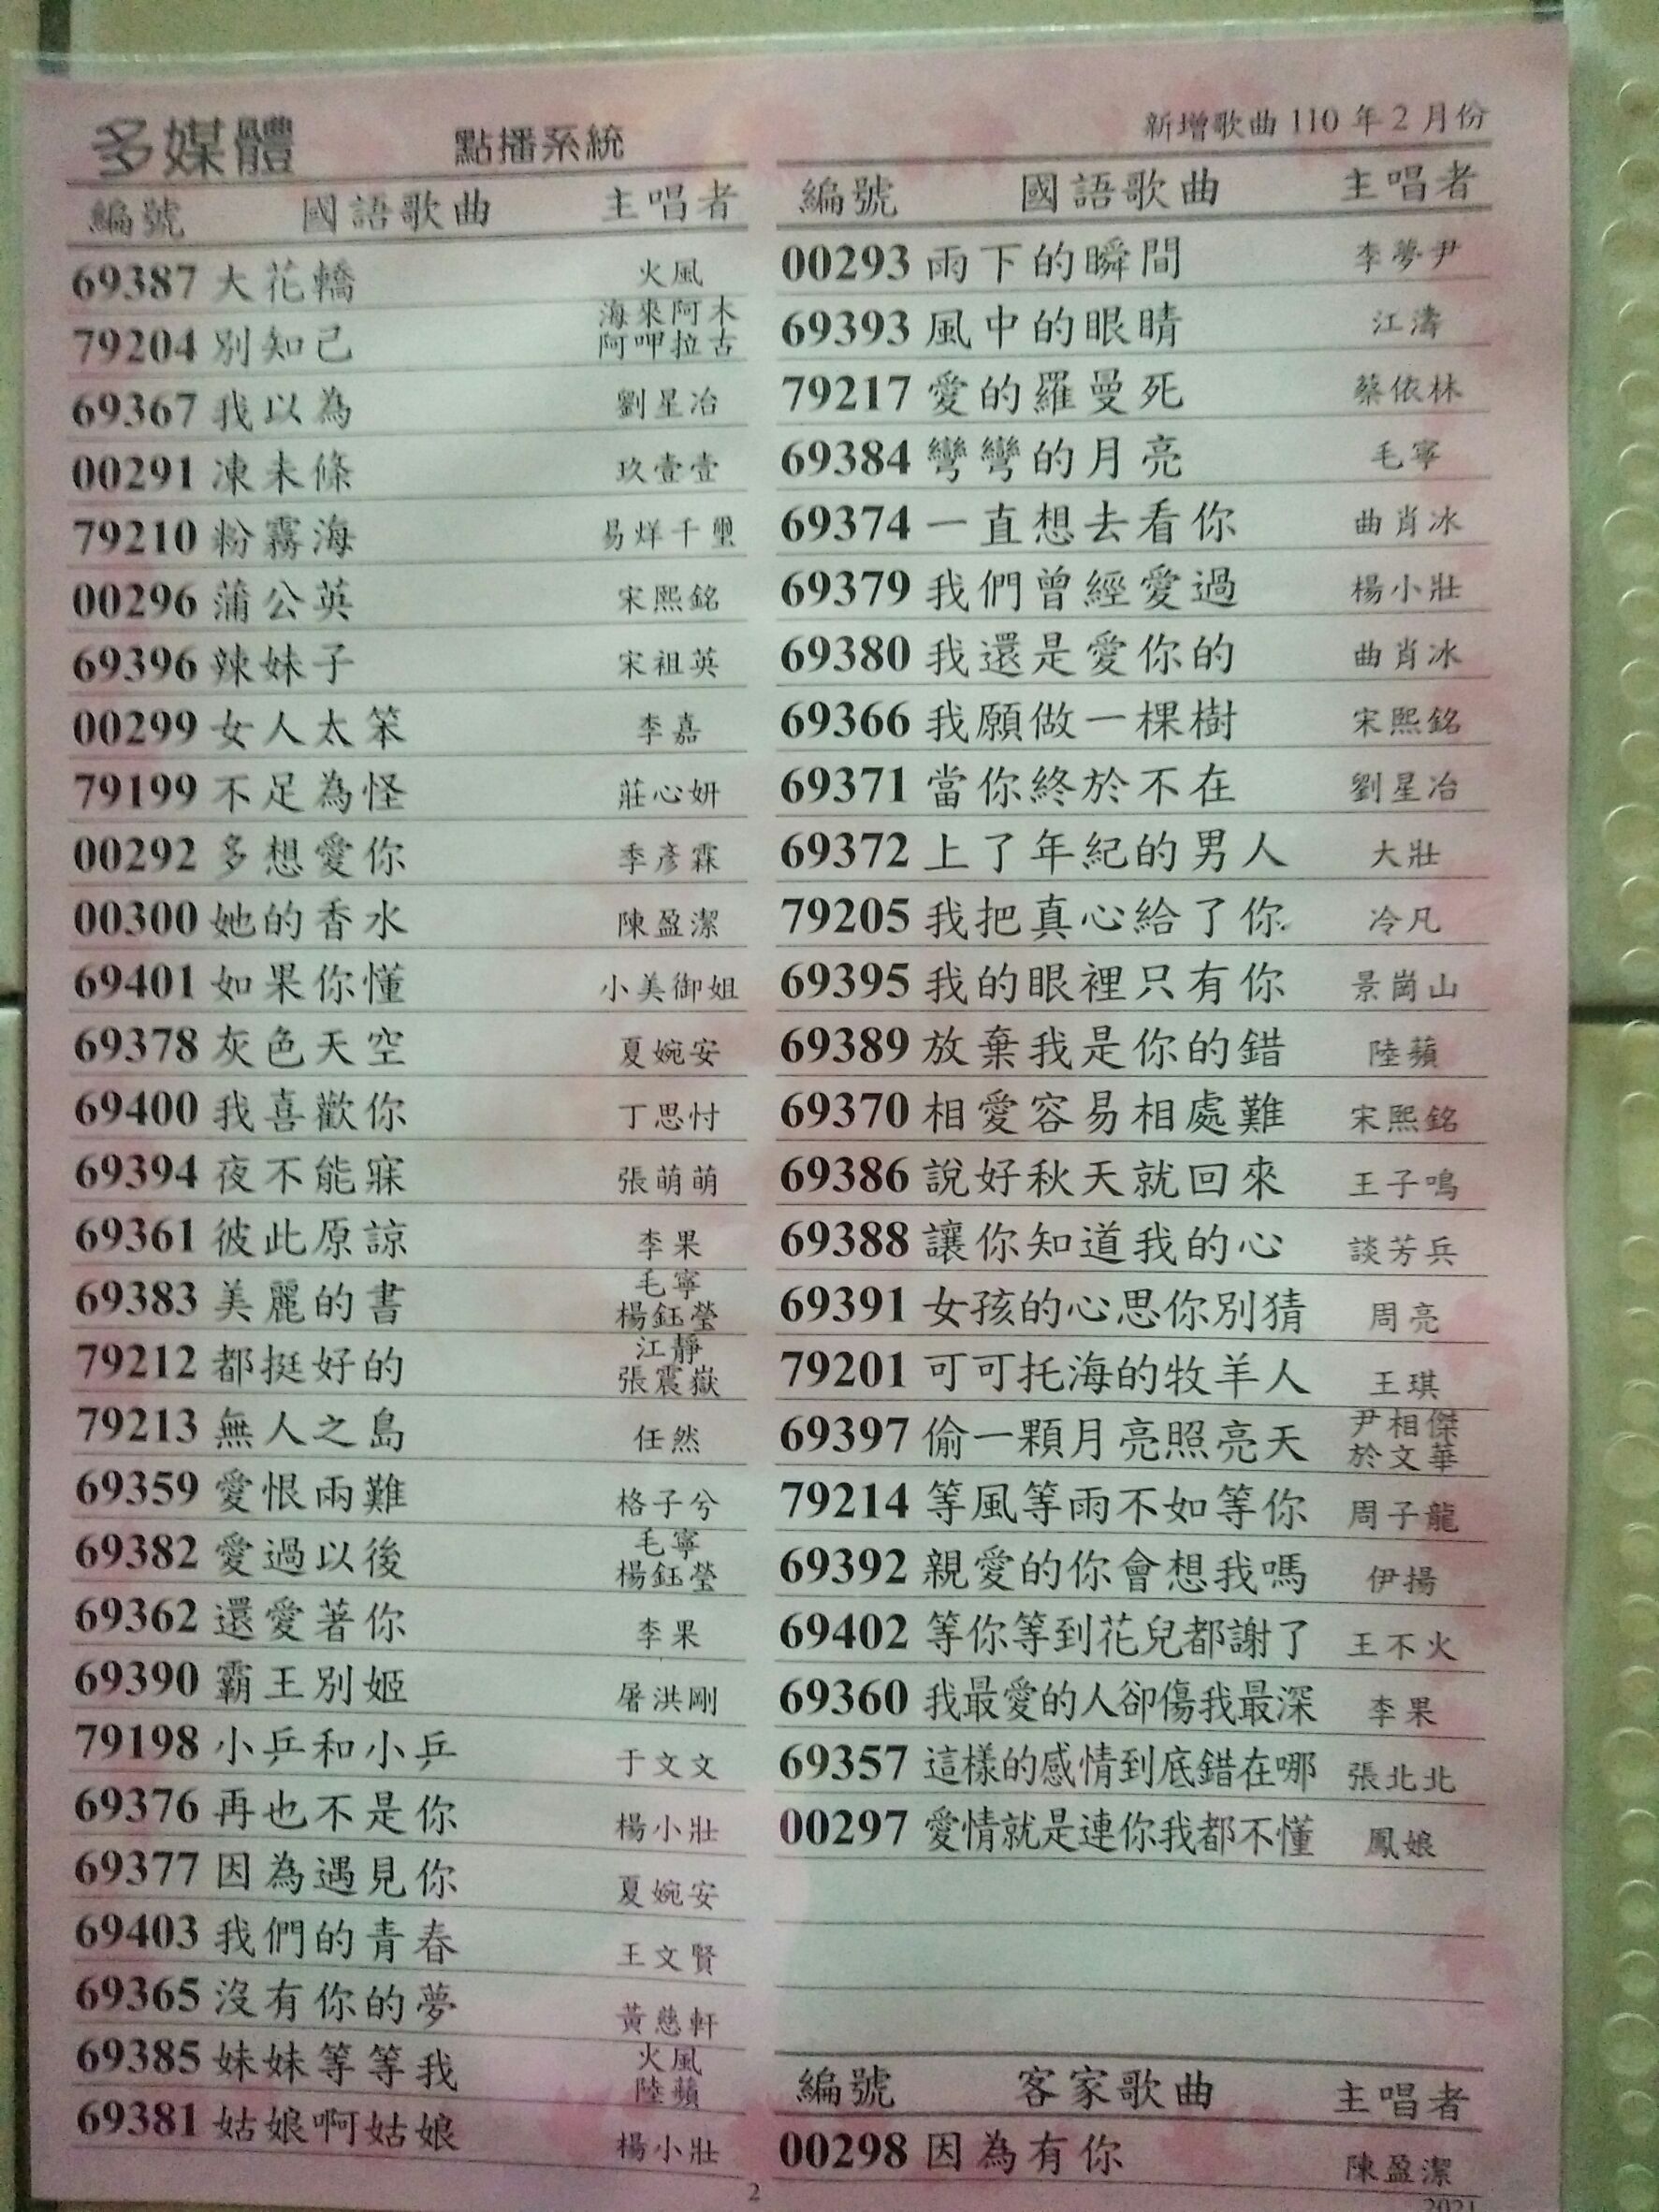 多媒體 點播系統
編號 國語歌曲 主唱者
69387 大花轎 火風
79204 別知己 海來阿木 阿呷拉古
69367 我以為 劉星冶
00291 凍未條 玖壹壹
79210 粉霧海 易烊千璽
00296 蒲公英 宋熙銘
69396 辣妹子 宋祖英
00299 女人太笨 李嘉
79199 不足為怪 莊心妍
00292 多想愛你 季彥霖
00300 她的香水 陳盈潔
69401 如果你懂 小美御姐
69378 灰色天空 夏婉安
69400 我喜歡你 丁思忖
69394 夜不能寐 張萌萌
69361 彼此原諒 李果
69383 美麗的書 毛寧 楊鈺瑩
79212 都挺好的 江靜 張震嶽
79213 無人之島 任然
69359 愛恨兩難 格子兮
69382 愛過以後 毛寧 楊鈺瑩
69362 還愛著你 李果
69390 霸王別姬 屠洪剛
79198 小乒和小乓 于文文
69376 再也不是你 楊小壯
69377 因為遇見你 夏婉安
69403 我們的青春 王文賢
69365 沒有你的夢 黃慈軒
69385 妹妹等等我 火風 陸蘋
69381 姑娘啊姑娘 楊小壯
新增歌曲 110 年 2 月份
編號 國語歌曲 主唱者
00293 雨下的瞬間 李夢尹
69393 風中的眼睛 江濤
79217 愛的羅曼死 蔡依林
69384 彎彎的月亮 毛寧
69374 一直想去看你 曲肖冰
69379 我們曾經愛過 楊小壯
69380 我還是愛你的 曲肖冰
69366 我願做一棵樹 宋熙銘
69371 當你終於不在 劉星冶
69372 上了年紀的男人 大壯
79205 我把真心給了你 冷凡
69395 我的眼裡只有你 景崗山
69389 放棄我是你的錯 陸蘋
69370 相愛容易相處難 宋熙銘
69386 說好秋天就回來 王子鳴
69388 讓你知道我的心 談芳兵
69391 女孩的心思你別猜 周亮
79201 可可托海的牧羊人 王琪
69397 偷一顆月亮照亮天 尹相傑 於文華
79214 等風等雨不如等你 周子龍
69392 親愛的你會想我嗎 伊揚
69402 等你等到花兒都謝了 王不火
69360 我最愛的人卻傷我最深 李果
69357 這樣的感情到底錯在哪 張北北
00297 愛情就是連你我都不懂 鳳娘
編號 客家歌曲 主唱者
00298 因為有你 陳盈潔
2
2021